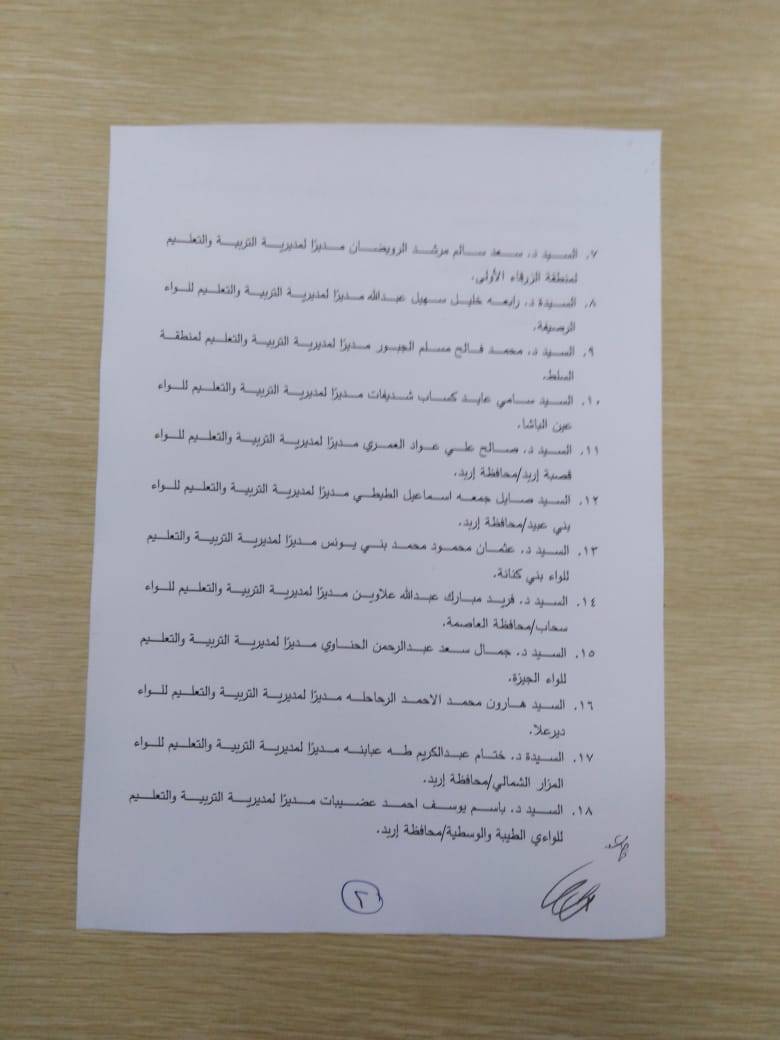 ٧. السيد د. سعد سالم مرشد الرويضان مديرًا لمديرية التربية والتعليم
لمنطقة الزرقاء الأولى.
٨. السيدة د. رابعه خليل سهيل عبدالله مديرًا لمديرية التربية والتعليم للواء
الرصيفة.
٩. السيد د. محمد فالح مسلم الجبور مديرًا لمديرية التربية والتعليم لمنطقة
السلط.
١٠. السيد سامي عايد كساب شديفات مديرًا لمديرية التربية والتعليم للواء
عين الباشا.
١١. السيد د. صالح علي عواد العمري مديرًا لمديرية التربية والتعليم للواء
قصبة إربد/محافظة إربد.
١٢. السيد صايل جمعه اسماعيل الطيطي مديرًا لمديرية التربية والتعليم للواء
بني عبيد/محافظة إربد.
١٣. السيد د. عثمان محمود محمد بني يونس مديرًا لمديرية التربية والتعليم
للواء بني كنانة.
١٤. السيد د. فريد مبارك عبدالله علاوين مديرًا لمديرية التربية والتعليم للواء
سحاب/محافظة العاصمة.
١٥. السيد د. جمال سعد عبدالرحمن الحناوي مديرًا لمديرية التربية والتعليم
للواء الجيزة.
١٦. السيد هارون محمد الاحمد الرحاحله مديرًا لمديرية التربية والتعليم للواء
ديرعلا.
١٧. السيدة د. ختام عبدالكريم طه عبابنه مديرًا لمديرية التربية والتعليم للواء
المزار الشمالي/محافظة إربد.
١٨. السيد د. باسم يوسف احمد عضيبات مديرًا لمديرية التربية والتعليم
للواءي الطيبة والوسطية/محافظة إربد.
٢